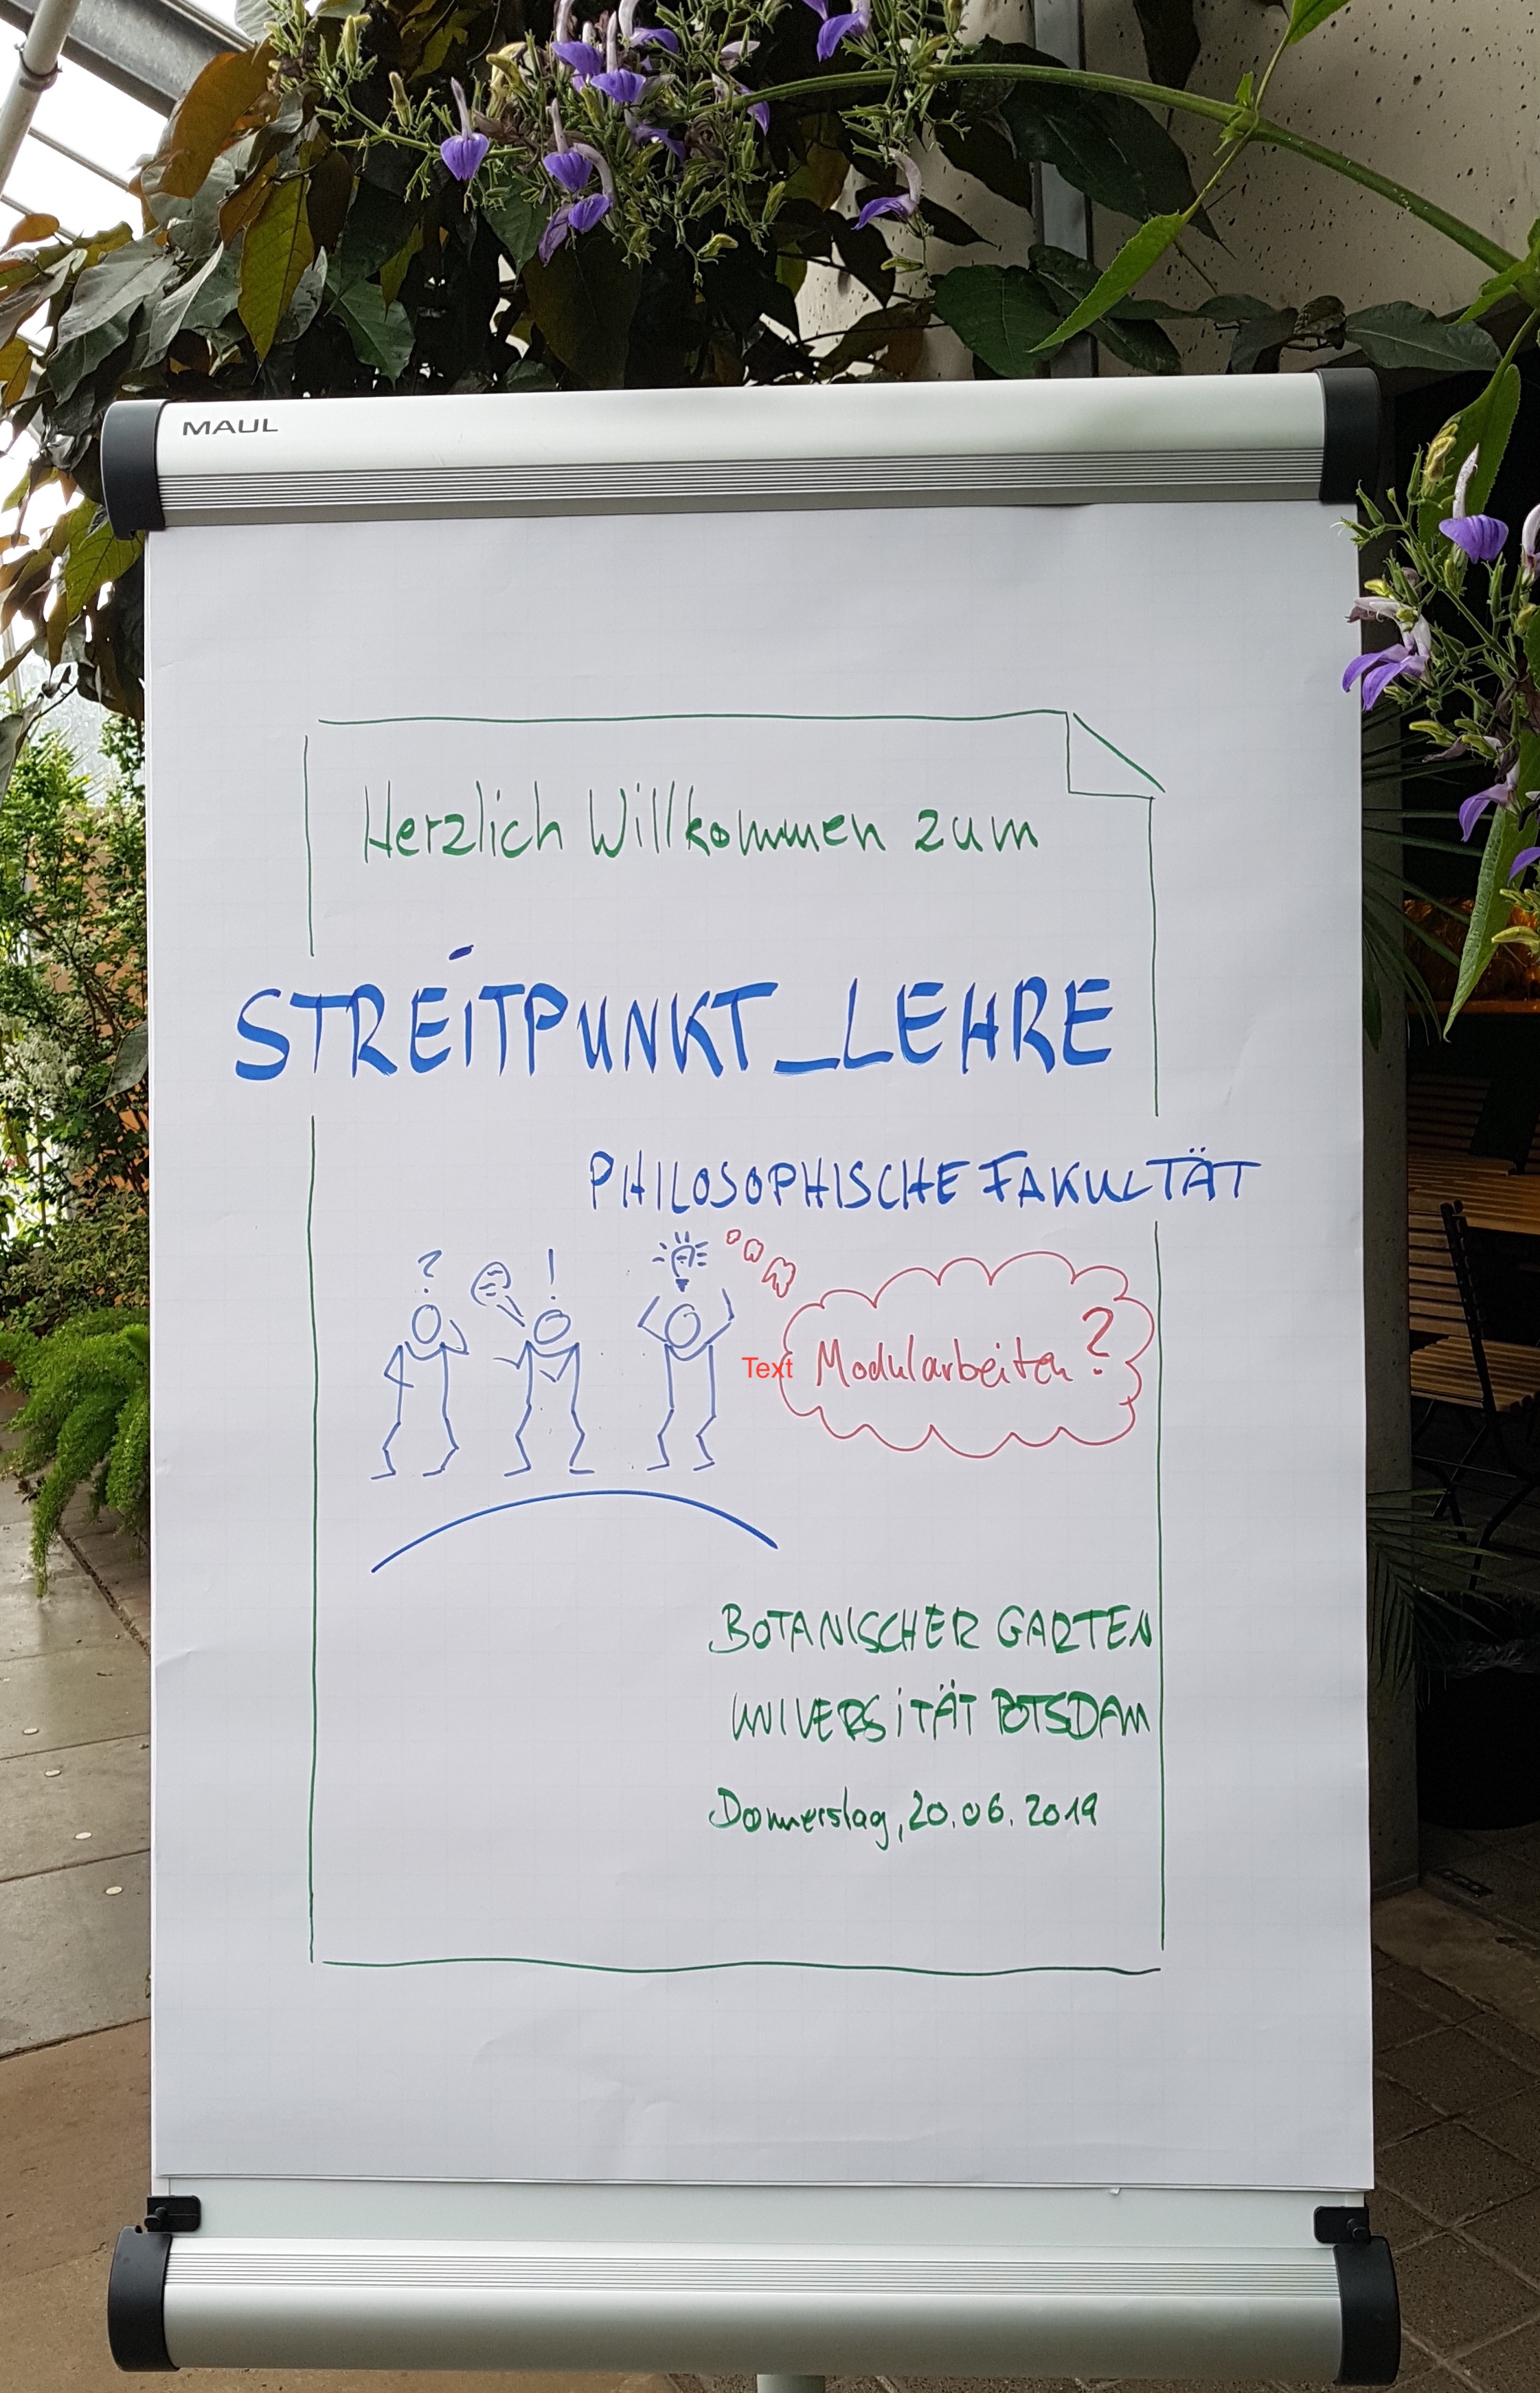 MAUL
Herzlich Willkommen zum
STREiTPUNKT_LEHRE
PHILOSOPHISCHE FAKULTÄT
? !
Text Modularbeiten?
BOTANISCHER GARTEN
UNIVERSiTÄT POTSDAM
Donnerstag, 20.06.2019